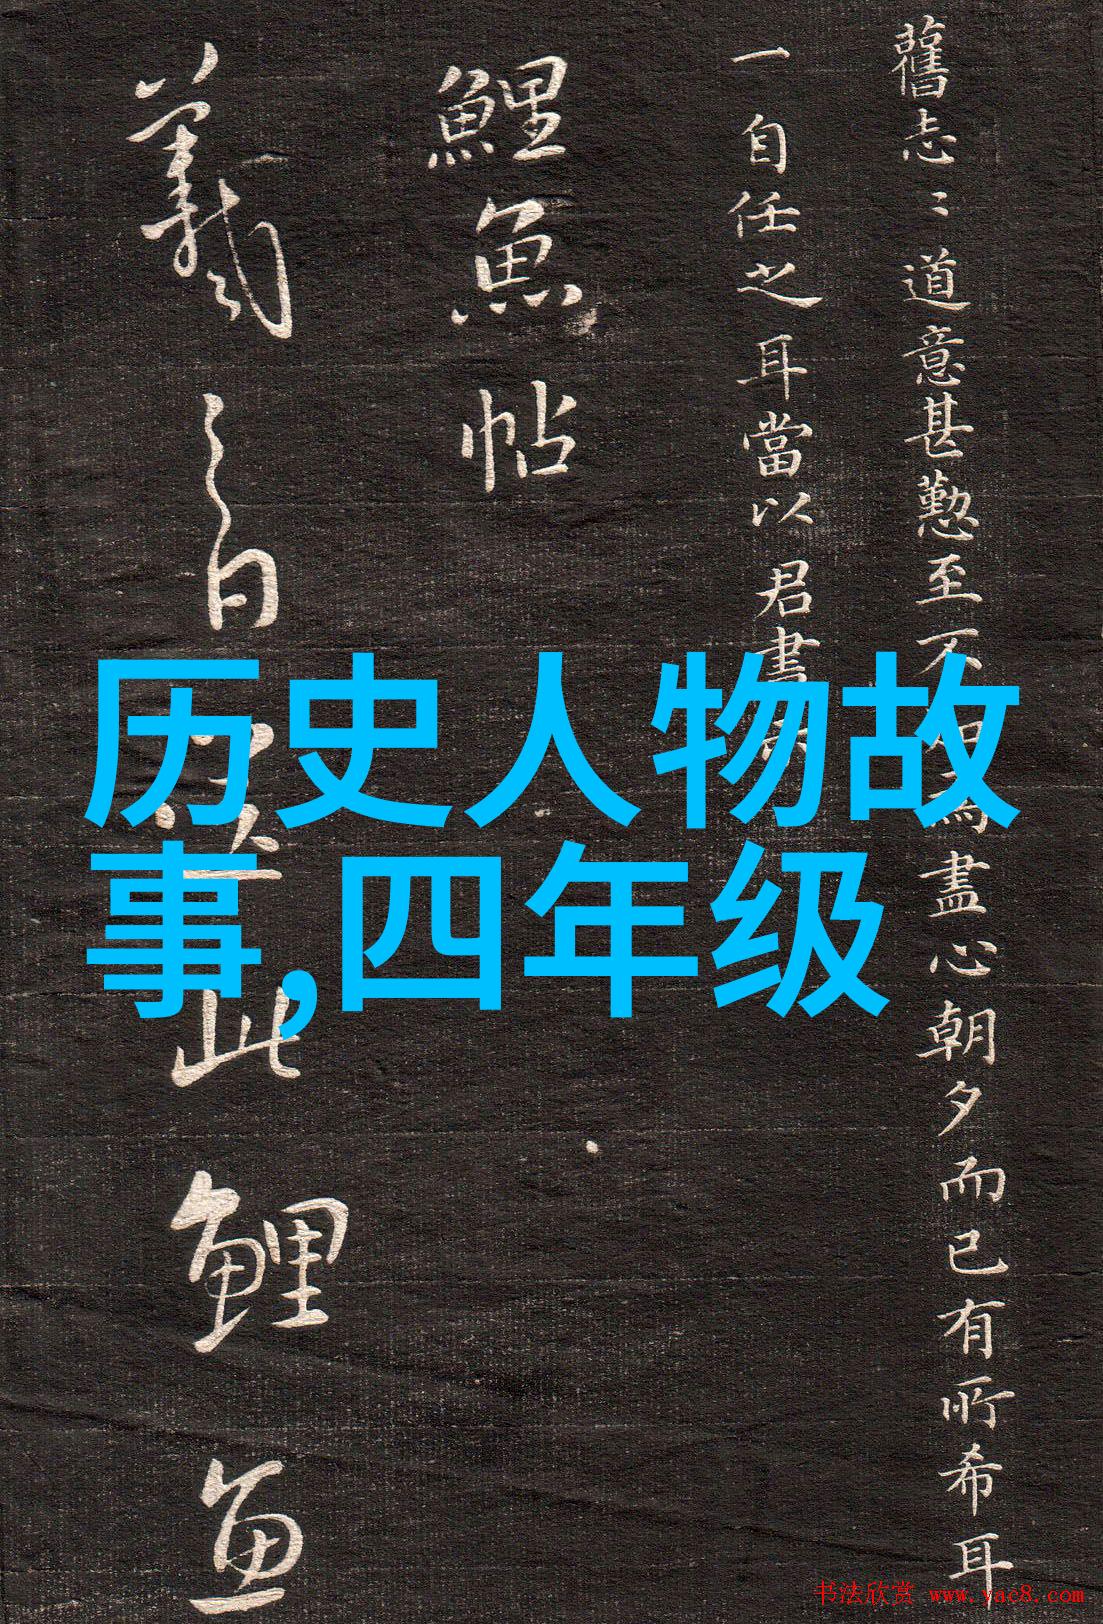 舊志〻道意甚懃至不
盡心朝夕而已有所希耳
一自任之耳當以君書
鯉魚帖
羲之白
此鯉魚
历史人物故
事,四年级
书法欣赏 www.yac8.com